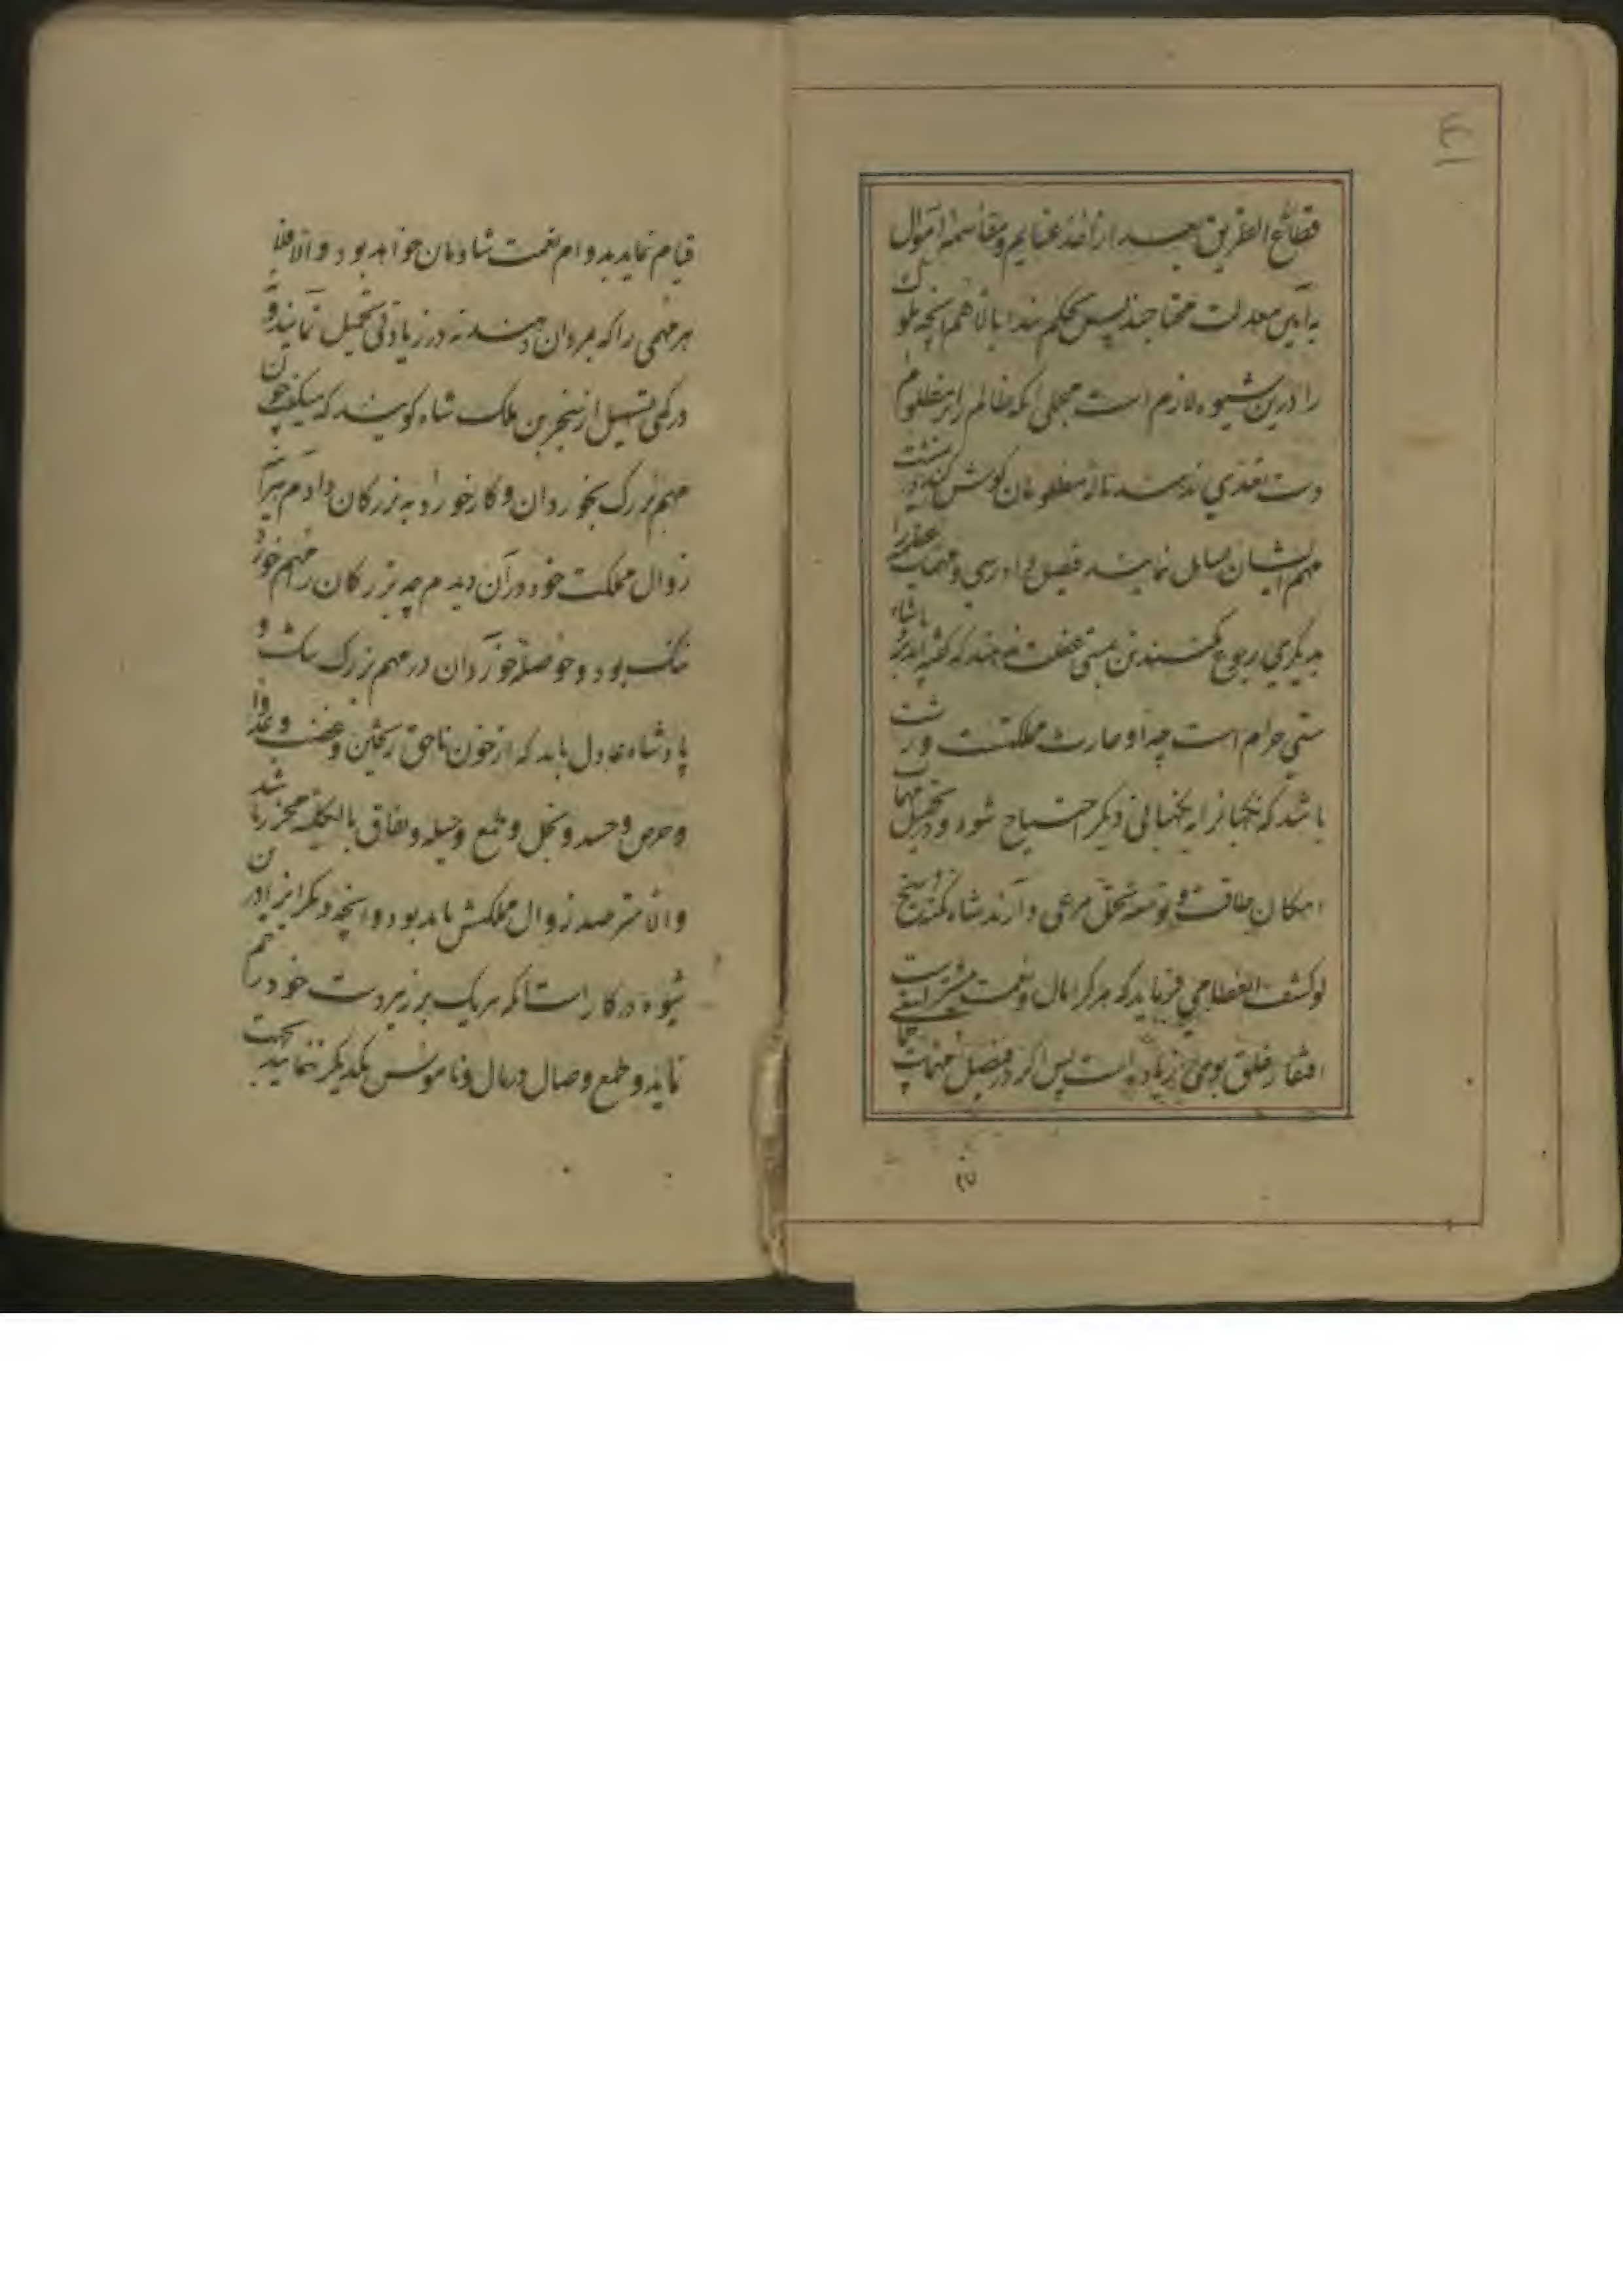 قطاع الطریق بعد از اخذ غنایم و مقاسمه اموال
به آیین معدلت محتاجند پس بحکم بالا اهم آنچه ملوک
را درین شیوه لازم است مجملی آنکه ظالم را بر مظلوم
دست تعدی ندهند ناله مظلومان گوش کنند در
مهم ایشان نمایند فیصل دادرسی و مهمات
بدیگری رجوع نکنند تن بمستی غفلت ندهند که گفته اند پادشاه را
مستی حرام است چه او حارث مملکتست و زشت
باشد که نگهبانرا به نگهبانی دیگر احتیاج شود و در تحمیل مهمات
امکان طاقت و توسعه تحمل مرعی دارند شاه
لو کشف الغطا می فرماید که هر کرا مال و نعمت بیشتر است
افتقار خلق بوی زیاده است پس اگر در فیصل مهمات
قیام نماید بدوام نعمت شادمان خواهد بود والا فلا
هر مهمی را که بمردان دهند نه در زیادتی تحمیل نمایند و نه
در کمی تسهیل از سنجر بن ملک شاه گویند که میگفت چون
مهم بزرگ بخوردان و کار خورد به بزرگان دادم
زوال مملکت خود در آن دیدم چه بزرگان را مهم خورد
ننگ بود و حوصله خوردان در مهم بزرگ تنگ و
پادشاه عادل باید که از خون ناحق ریختن و غضب و
و حرص و حسد و بخل و طمع و حیله و نفاق بالکلیه محترز باشد
والا مترصد زوال مملکتش باید بود و آنچه دیگر
شیوه در کار است آنکه هر یک بر زیردست خود
نماید و طمع وصال در مال و ناموس یکدیگر ننمایند